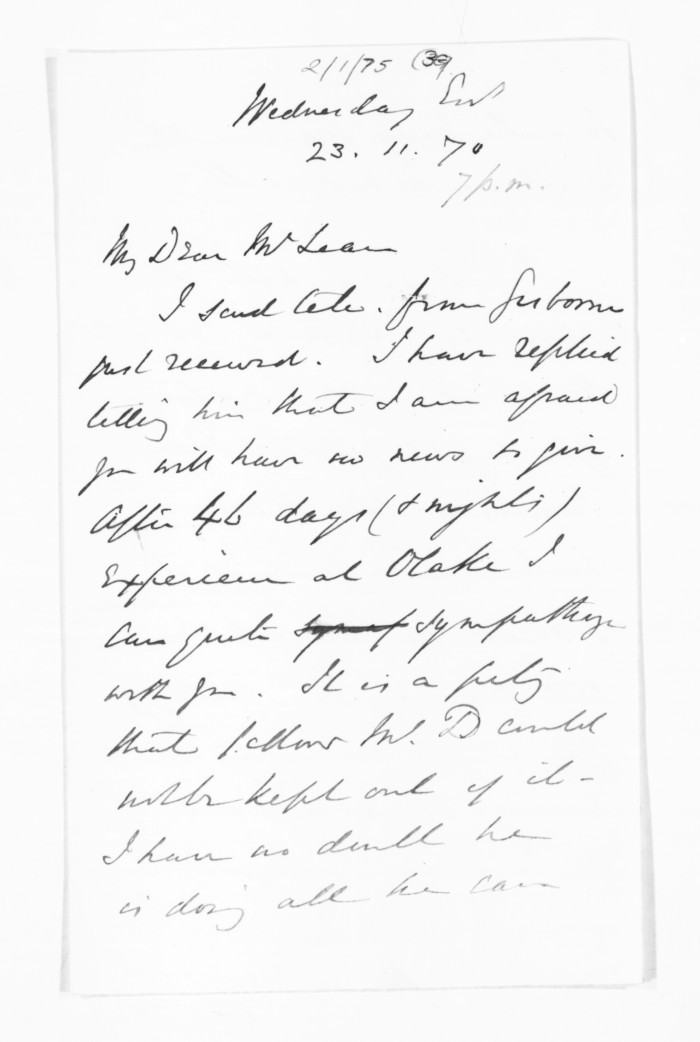 2/1/75 (39)
Wednesday Evg
23. 11. 70
7 p.m.
My Dear McLean
I send tele. from Gisborne
just received. I have replied
telling him that I am afraid
you will have no news to give.
After 46 days (& nights)
experience at Otaki I
can quite symp sympathize
with you. It is a pity
that fellow Mc. D could
not be kept out of it -
I have no doubt he
is doing all he can